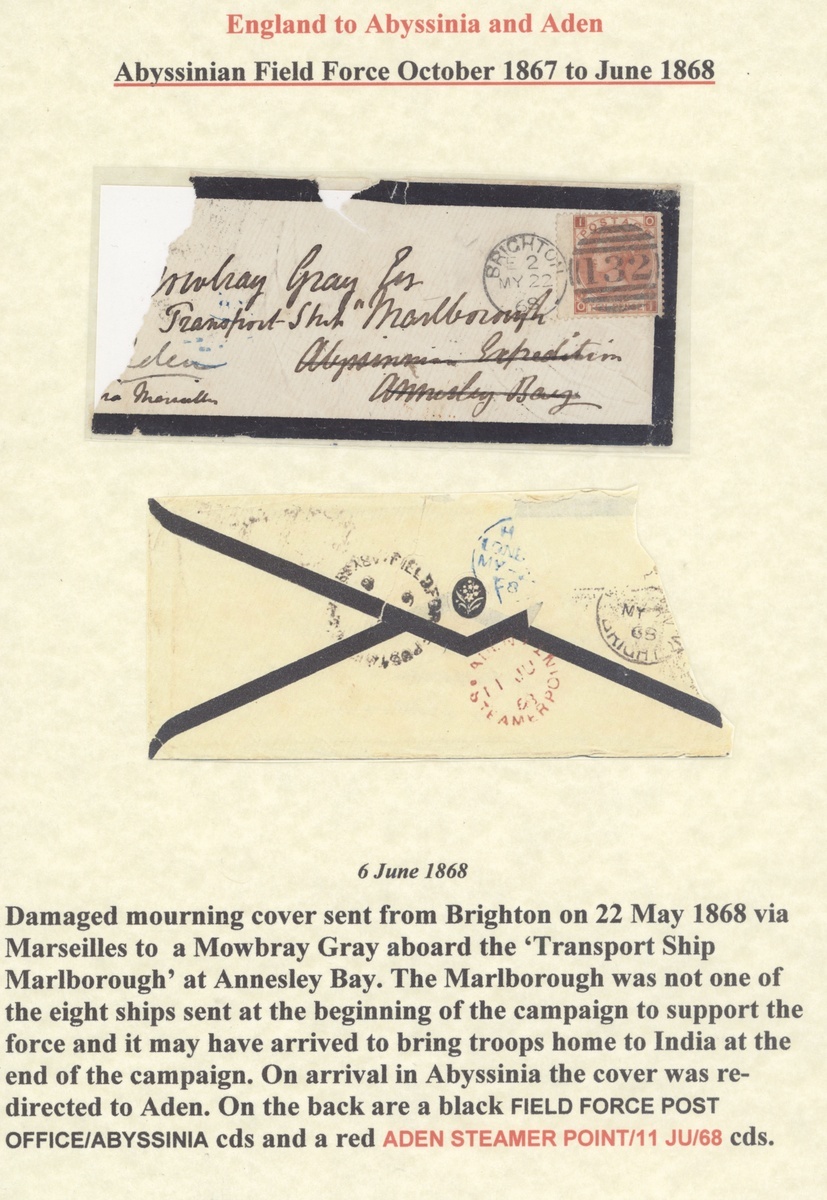 England to Abyssinia and Aden
Abyssinian Field Force October 1867 to June 1868
BRIGHTON
2
MY 22
68
I O
POSTAGE
132
O I
owbray Gray Esr
Transport Ship "Marlborough"
Abyssinian Expedition
Annesley Bay
den
via Marseilles
FIELD FOR
POST
LOND
MY
68
MY
68
BRIGHT
11 JU
68
STEAMER POINT
6 June 1868
Damaged mourning cover sent from Brighton on 22 May 1868 via
Marseilles to a Mowbray Gray aboard the ‘Transport Ship
Marlborough’ at Annesley Bay. The Marlborough was not one of
the eight ships sent at the beginning of the campaign to support the
force and it may have arrived to bring troops home to India at the
end of the campaign. On arrival in Abyssinia the cover was re-
directed to Aden. On the back are a black FIELD FORCE POST
OFFICE/ABYSSINIA cds and a red ADEN STEAMER POINT/11 JU/68 cds.